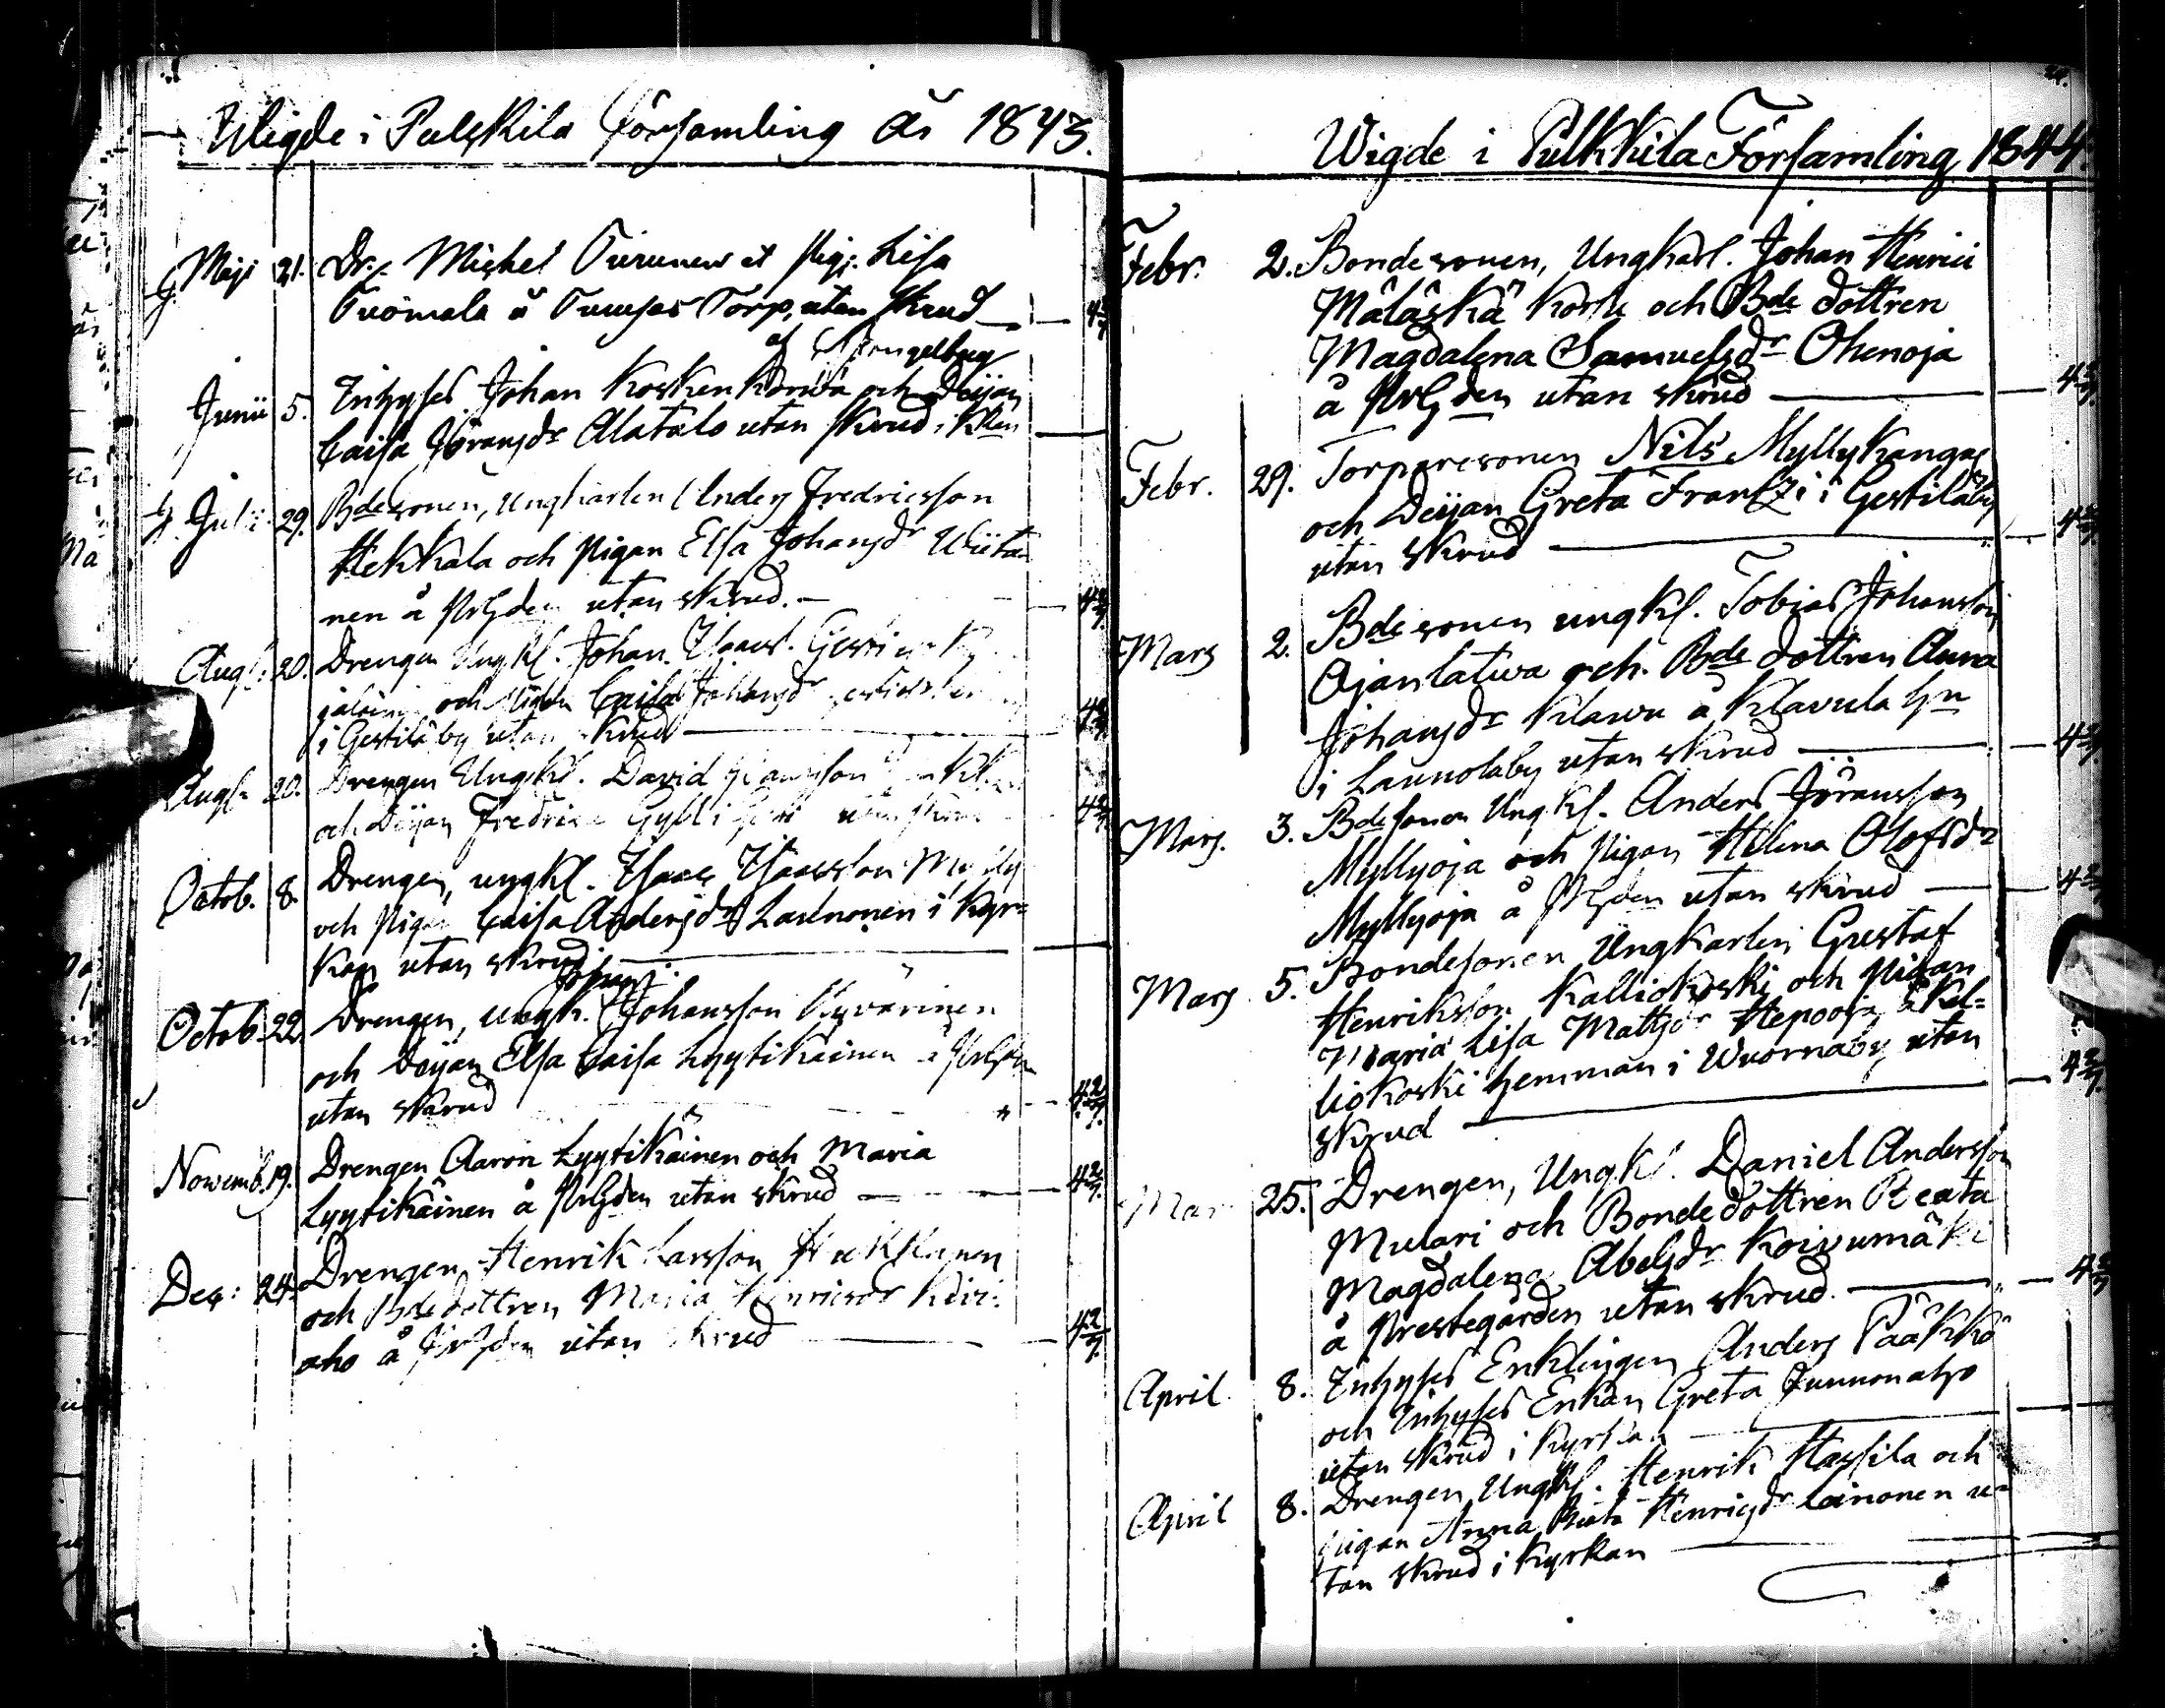 Wigde i Pulkkila Församling År 1843.
Maji 21. Dr. Michel Turunen et Pig. Lisa
Tuomala å Torp, utan skrud 42/7.
af Spongelberg
Junii 5. Inhyses Johan Koskenkorwa och Deijan
Caisa Göransdr Alatalo utan skrud i Kkan
Julii 29. Bdesonen, Ungkarlen Anders Fredricsson
Hekkala och Pigan Elsa Johansdr Wiita
nen å Prgden utan skrud. 42/7.
Aug: 20. Drengen Ungkl. Johan Isacs.
och Pigan Caisa Johansdr
i Gestilä by utan skrud 42/7.
Aug: 20. Drengen Ungkl. David
och Deijan Fredrica 42/7.
Octob. 8. Drengen, ungkl. Isaac Isacsson
och Pigan Caisa Andersdr Laurnonen i Kyr=
kan utan skrud.
Johan
Octob. 22. Drengen, ungk. Johansson Kyvärinen
och Deijan Elsa Caisa Lyytikäinen å Prgden
utan skrud 42/7.
Novemb. 19. Drengen Aaron Lyytikäinen och Maria
Lyytikäinen å Prgden utan skrud 42/7.
Dec: 24. Drengen Henrik Larsson
och Bdedottren Maria Henricsdr Kivi=
aho å Prgden utan skrud 42/7.
Wigde i Pulkkila Församling 1844.
Febr. 2. Bondesonen, Ungkarl. Johan Henrici
Mäläskä Korte och Bde dottren
Magdalena Samuelsdr Ohenoja
å Prgden utan skrud 42/7.
Febr. 29. Torparesonen Nils Myllykangas
och Deijan Greta Frantzi i Gestilä by
utan skrud 42/7.
Mars 2. Bde sonen ungkl. Tobias Johansson
Ojanlatwa och Bde dottren Anna
Johansdr Klawu å Klavula hn
i Launolaby utan skrud 42/7.
Mars. 3. Bdesonen Ungkl. Anders Jöransson
Myllyoja och Pigan Helena Olofsdr
Myllyoja å Prgden utan skrud 42/7.
Mars 5. Bondesonen Ungkarlen Gustaf
Henriksson Kalliokoski och Pigan
Maria Lisa Mattsdr Hepooja å Kal=
liokoski hemman i Wuornaby utan
skrud 42/7.
Mar 25. Drengen, Ungkl. Daniel Andersson
Mulari och Bondedottren Beata
Magdalena Abelsdr Koivumäki
å Prestegården utan skrud. 42/7.
April 8. Inhyses Enklingen Anders Pääkkö
och Inhyses Enkan Greta Junnonaho
utan skrud i Kyrkan
April 8. Drengen Ungkl. Henrik Hassila och
Pigan Anna Beata Henricsdr Leinonen u=
tan skrud i Kyrkan